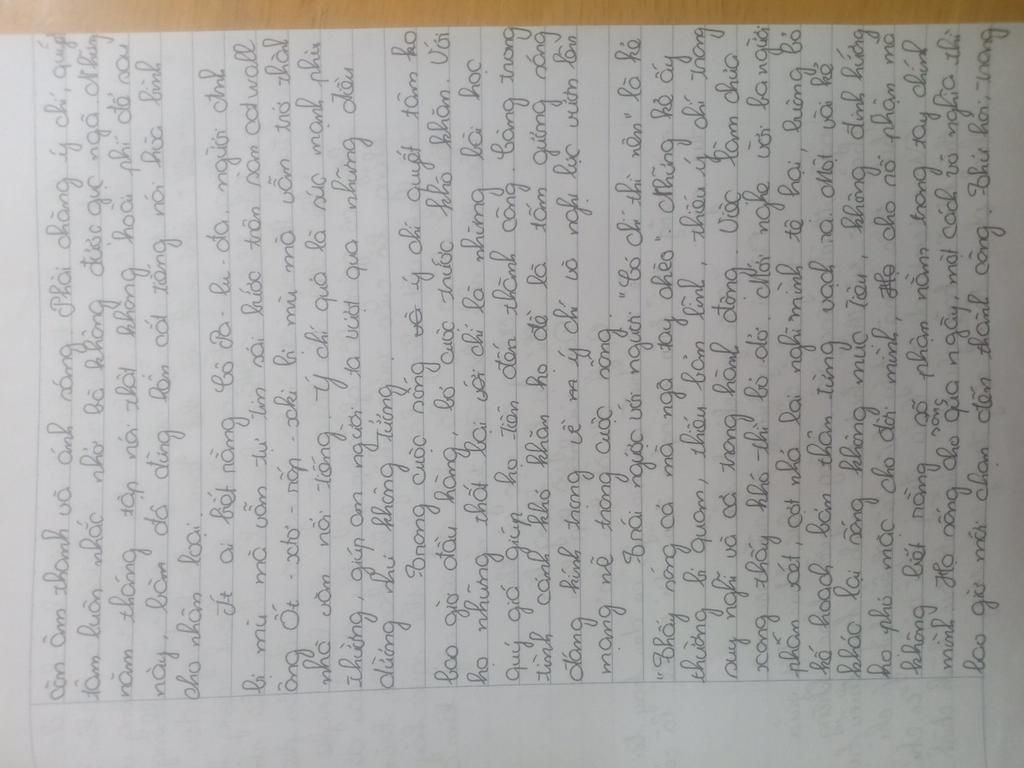 còn âm thanh và ánh sáng. Phải chăng ý chí, quyết
tâm luôn nhắc nhở bà không được gục ngã. Những
năm tháng tập nói thật không hoài phí để sau
này, bằm đó dùng bốn cát tiếng nói hòa bình
cho nhân loại.
Ít ai biết rằng cô Bla-lu-đa, người Anh
bị mù mà vẫn tự tin sải bước trên sàn catwalk
ông Ốt-xtơ-rốp-xki bị mù mà vẫn trở thành
nhà văn nổi tiếng. Ý chí quả là sức mạnh phi
thường, giúp con người ta vượt qua những điều
tưởng như không tưởng.
Trong cuộc sống và ý chí quyết tâm ko
bao giờ đầu hàng, bó cước trước khó khăn. Với
họ những thất bại với chỉ là những bài học
quý giá giúp họ tiến đến thành công. Bằng trong
tình cảnh khó khăn họ đó là tấm gương sáng
đáng kính trọng về mặt ý chí và nghị lực vươn lên
mạnh mẽ trong cuộc sống.
Trái ngược với người "Có chí thì nên" là kẻ
"Thấy sóng cả mà ngã tay chèo". Những kẻ ấy
thường bi quan, thiếu bản lĩnh, thiếu ý chí trong
suy nghĩ và cả trong hành động. Việc làm chưa
xong thấy khó thì bỏ dở. Chơi nghe vài ba người
phán xét, cợt nhả lại nghĩ mình tệ hại, luôn bỏ
kế hoạch bản thân từng vạch ra. Một vài kẻ
khác lại sống không mục tiêu, không định hướng
họ phó mặc cho đời mình, Họ cho nó phận mà
không biết rằng số phận nằm trong tay chính
mình. Họ sống cho qua ngày, một cách vô nghĩa thì
bao giờ mới chạm đến thành công. Thử hỏi, trong